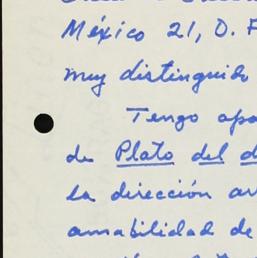 México 21, D. F
muy distinguido
Tengo apa
de Plato del d
la dirección
amabilidad de